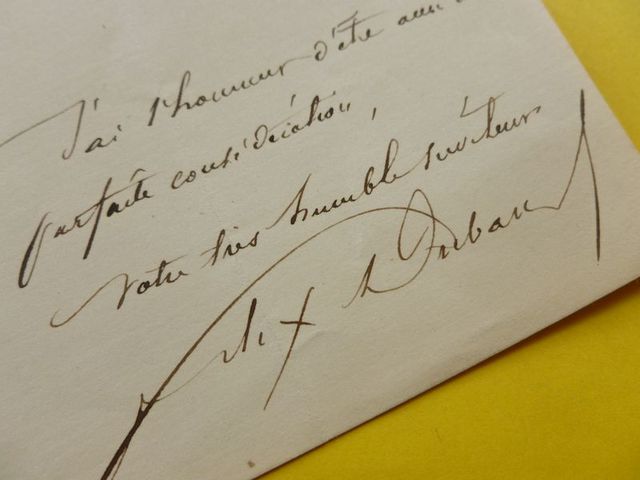 J'ai l'honneur d'être avec
parfaite considération,
votre très humble serviteur
Felix